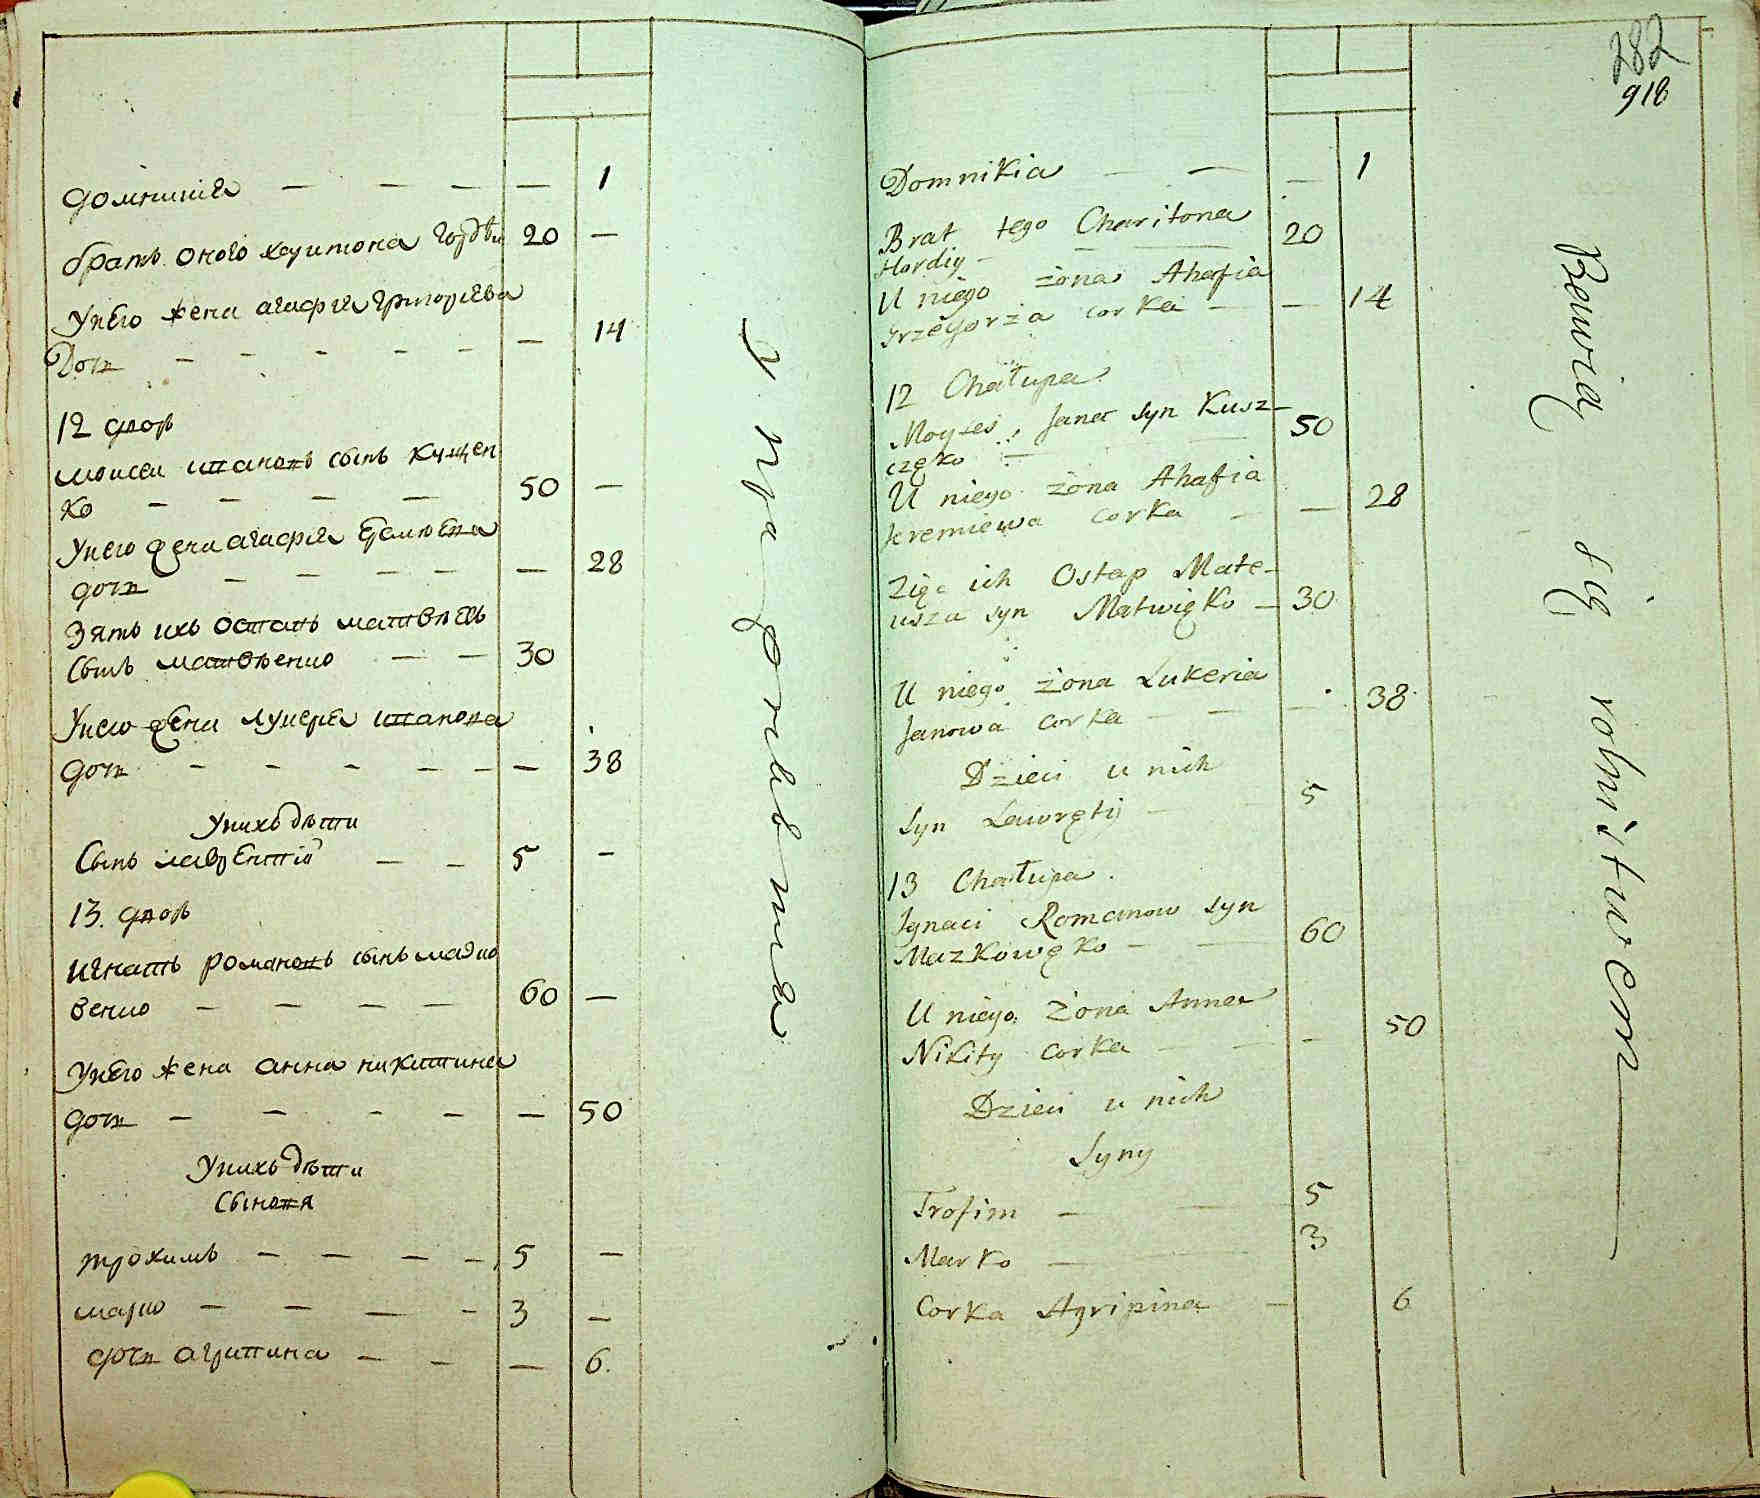 Домникия — — — — 1
братъ оного харитона гордѣи 20 —
У него жена агафия григорiева
Дочь — — — — — — 14
12 дворъ
моисеи ивановъ сынъ кущен
ко — — — — 50 —
У него жена агафия еремиева
дочь — — — — — 28
Зять ихъ остапъ матвѣевъ
сынъ матвѣенко — — 30
У него жена лукерия иванова
дочь — — — — — — 38
У нихъ дѣти
Сынъ лаврентiй — — 5 —
13. дворъ
игнатъ романовъ сынъ мазко
венко — — — — 60 —
У него жена анна никитина
дочь — — — — — 50
У нихъ дѣти
Сыновя
трохимъ — — — — 5 —
марко — — — — 3 —
дочь агрипина — — — 6.
282
918
Domnikia — — — 1
Brat tego Charitona 20
Hordiy — — —
U niego żona Ahafia
Grzegorza corka — — 14
12 Chałupa
Moyses, Jana syn Kusz- 50
częko —
U niego żona Ahafia
Jeremiewa corka — — 28
Zięc ich Ostap Mate-
usza syn Matwięko — 30
U niego żona Lukeria
Janowa corka — — — 38
Dzieci u nich
Syn Lawrętij — 5
13 Chałupa.
Ignaci Romanow syn
Mazkowęko — — 60
U niego żona Anna
Nikity corka — — — 50
Dzieci u nich
Syny
Trofim — — 5
Marko — — 3
Corka Agripina — 6
Bawią się rolnistwem —